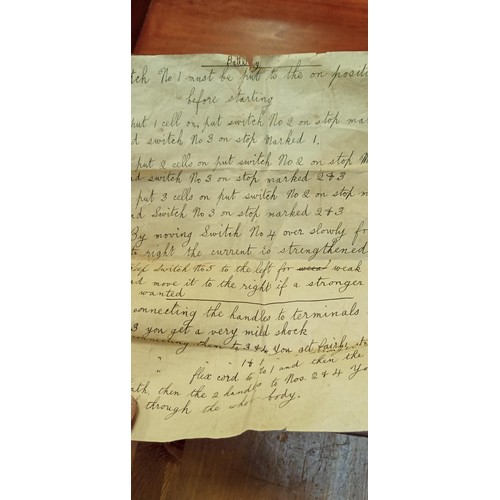 Battery
tch No 1 must be put to the on positi
before starting
put 1 cell on, put switch No 2 on stop mar
d switch No 3 on stop Marked 1.
put 2 cells on put switch No 2 on stop M
nd switch No 3 on stop marked 2 & 3
put 3 cells on put switch No 2 on stop m
nd Switch No 3 on stop marked 2 & 3
By moving Switch No 4 over slowly fr
to right the current is strengthened
switch No 5 to the left for weak
nd move it to the right if a stronger
wanted
onnecting the handles to terminals
3 you get a very mild shock
them to 3 & 4 you get fairly st
" " " 1 & 1 " " "
" flex cord to 1 and then the
ath, then the 2 handles to Nos. 2 & 4 Yo
through the whole body.